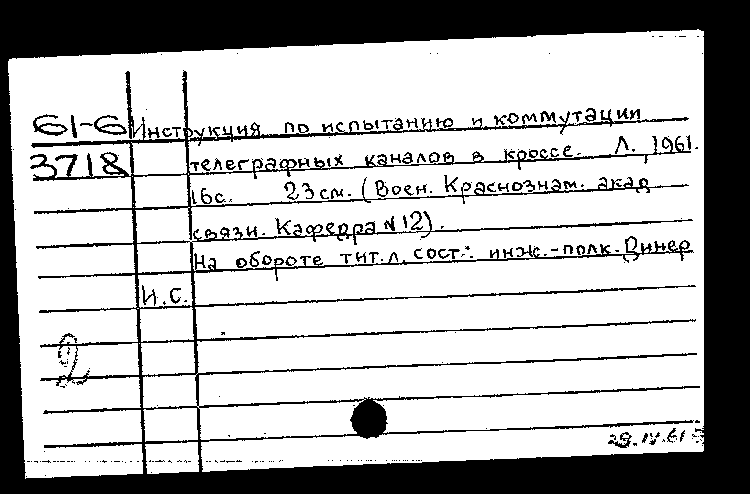 61-6 Инструкция по испытанию и коммутации
3718 телеграфных каналов в кроссе. Л., 1961.
16с. 23см. (Воен. Краснознам. акад
связи. Кафедра №12).
На обороте тит.л. сост.: инж.-полк. Винер
И.С.
2
29.IV.61